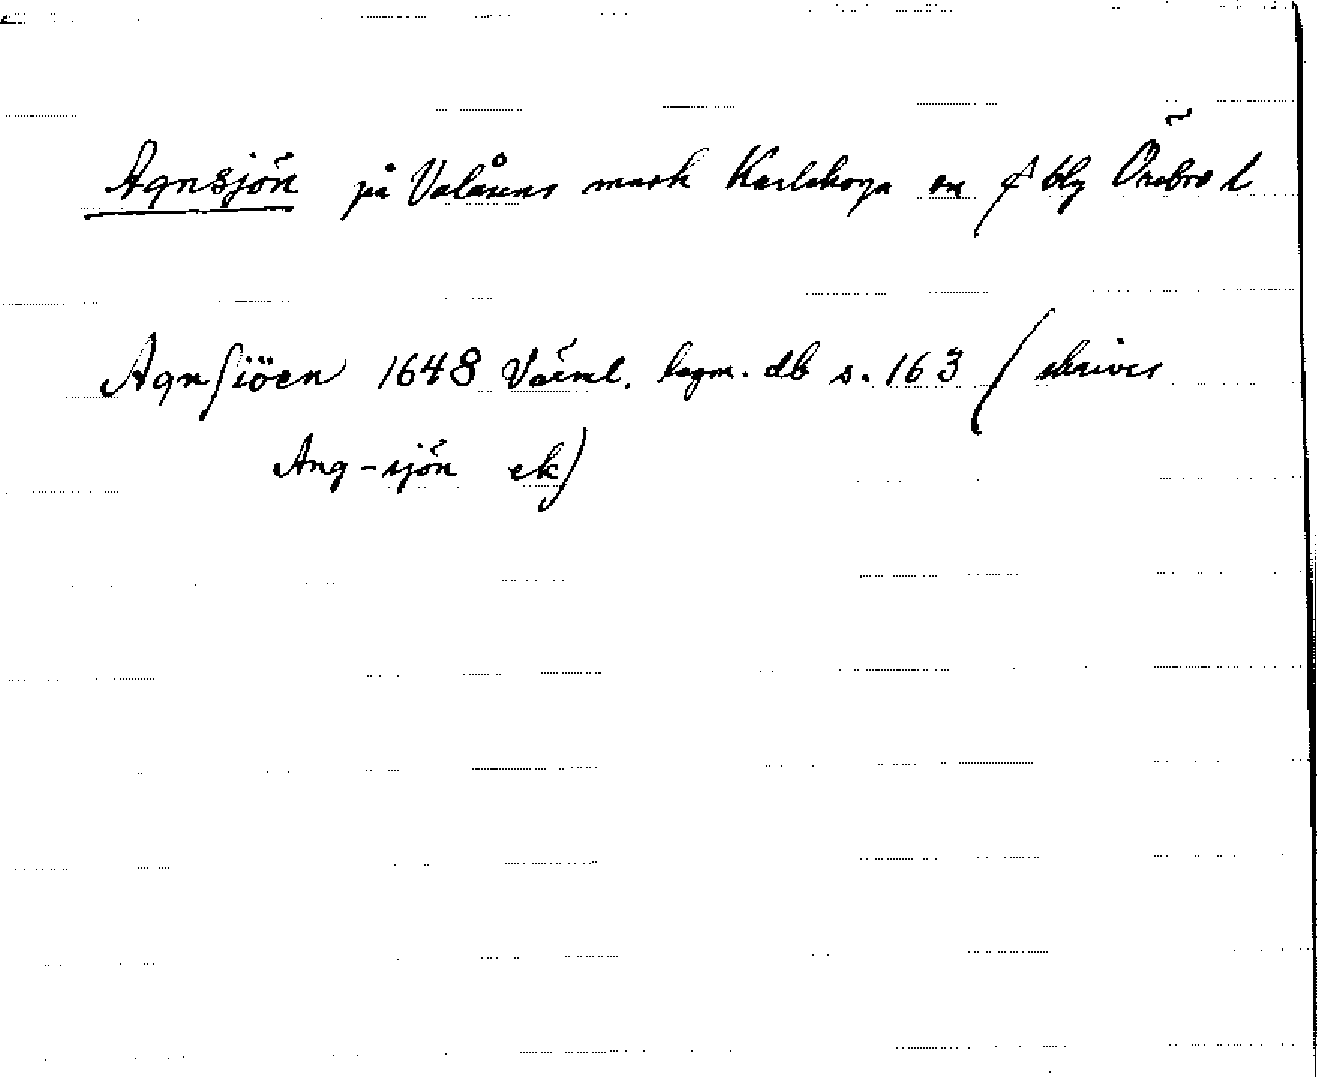 Agnsjön på Valåsens mark Karlskoga sn f blg Örebro l
Agnsjöen 1648 Värml. lagm. db s. 163 (skrives
Ang-sjön ek)